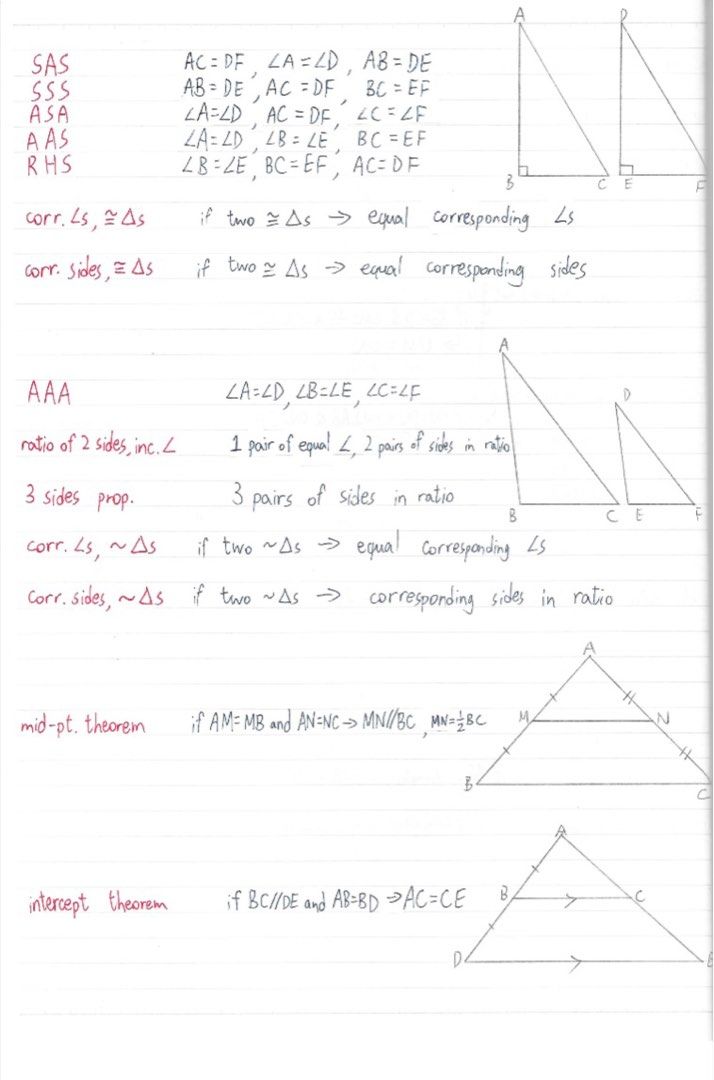 A D
SAS AC = DF, ∠A = ∠D, AB = DE
SSS AB = DE, AC = DF, BC = EF
ASA ∠A=∠D, AC = DF, ∠C = ∠F
AAS ∠A=∠D, ∠B = ∠E, BC = EF
RHS ∠B = ∠E, BC = EF, AC = DF
B C E F
corr. ∠s, ≅ Δs if two ≅ Δs → equal corresponding ∠s
corr. sides, ≅ Δs if two ≅ Δs → equal corresponding sides
A
AAA ∠A=∠D, ∠B=∠E, ∠C=∠F D
ratio of 2 sides, inc. ∠ 1 pair of equal ∠, 2 pairs of sides in ratio
3 sides prop. 3 pairs of sides in ratio
B C E F
corr. ∠s, ~Δs if two ~Δs → equal corresponding ∠s
corr. sides, ~Δs if two ~Δs → corresponding sides in ratio
A
mid-pt. theorem if AM=MB and AN=NC → MN//BC, MN=½BC M N
B C
A
intercept theorem if BC//DE and AB=BD → AC=CE B C
D